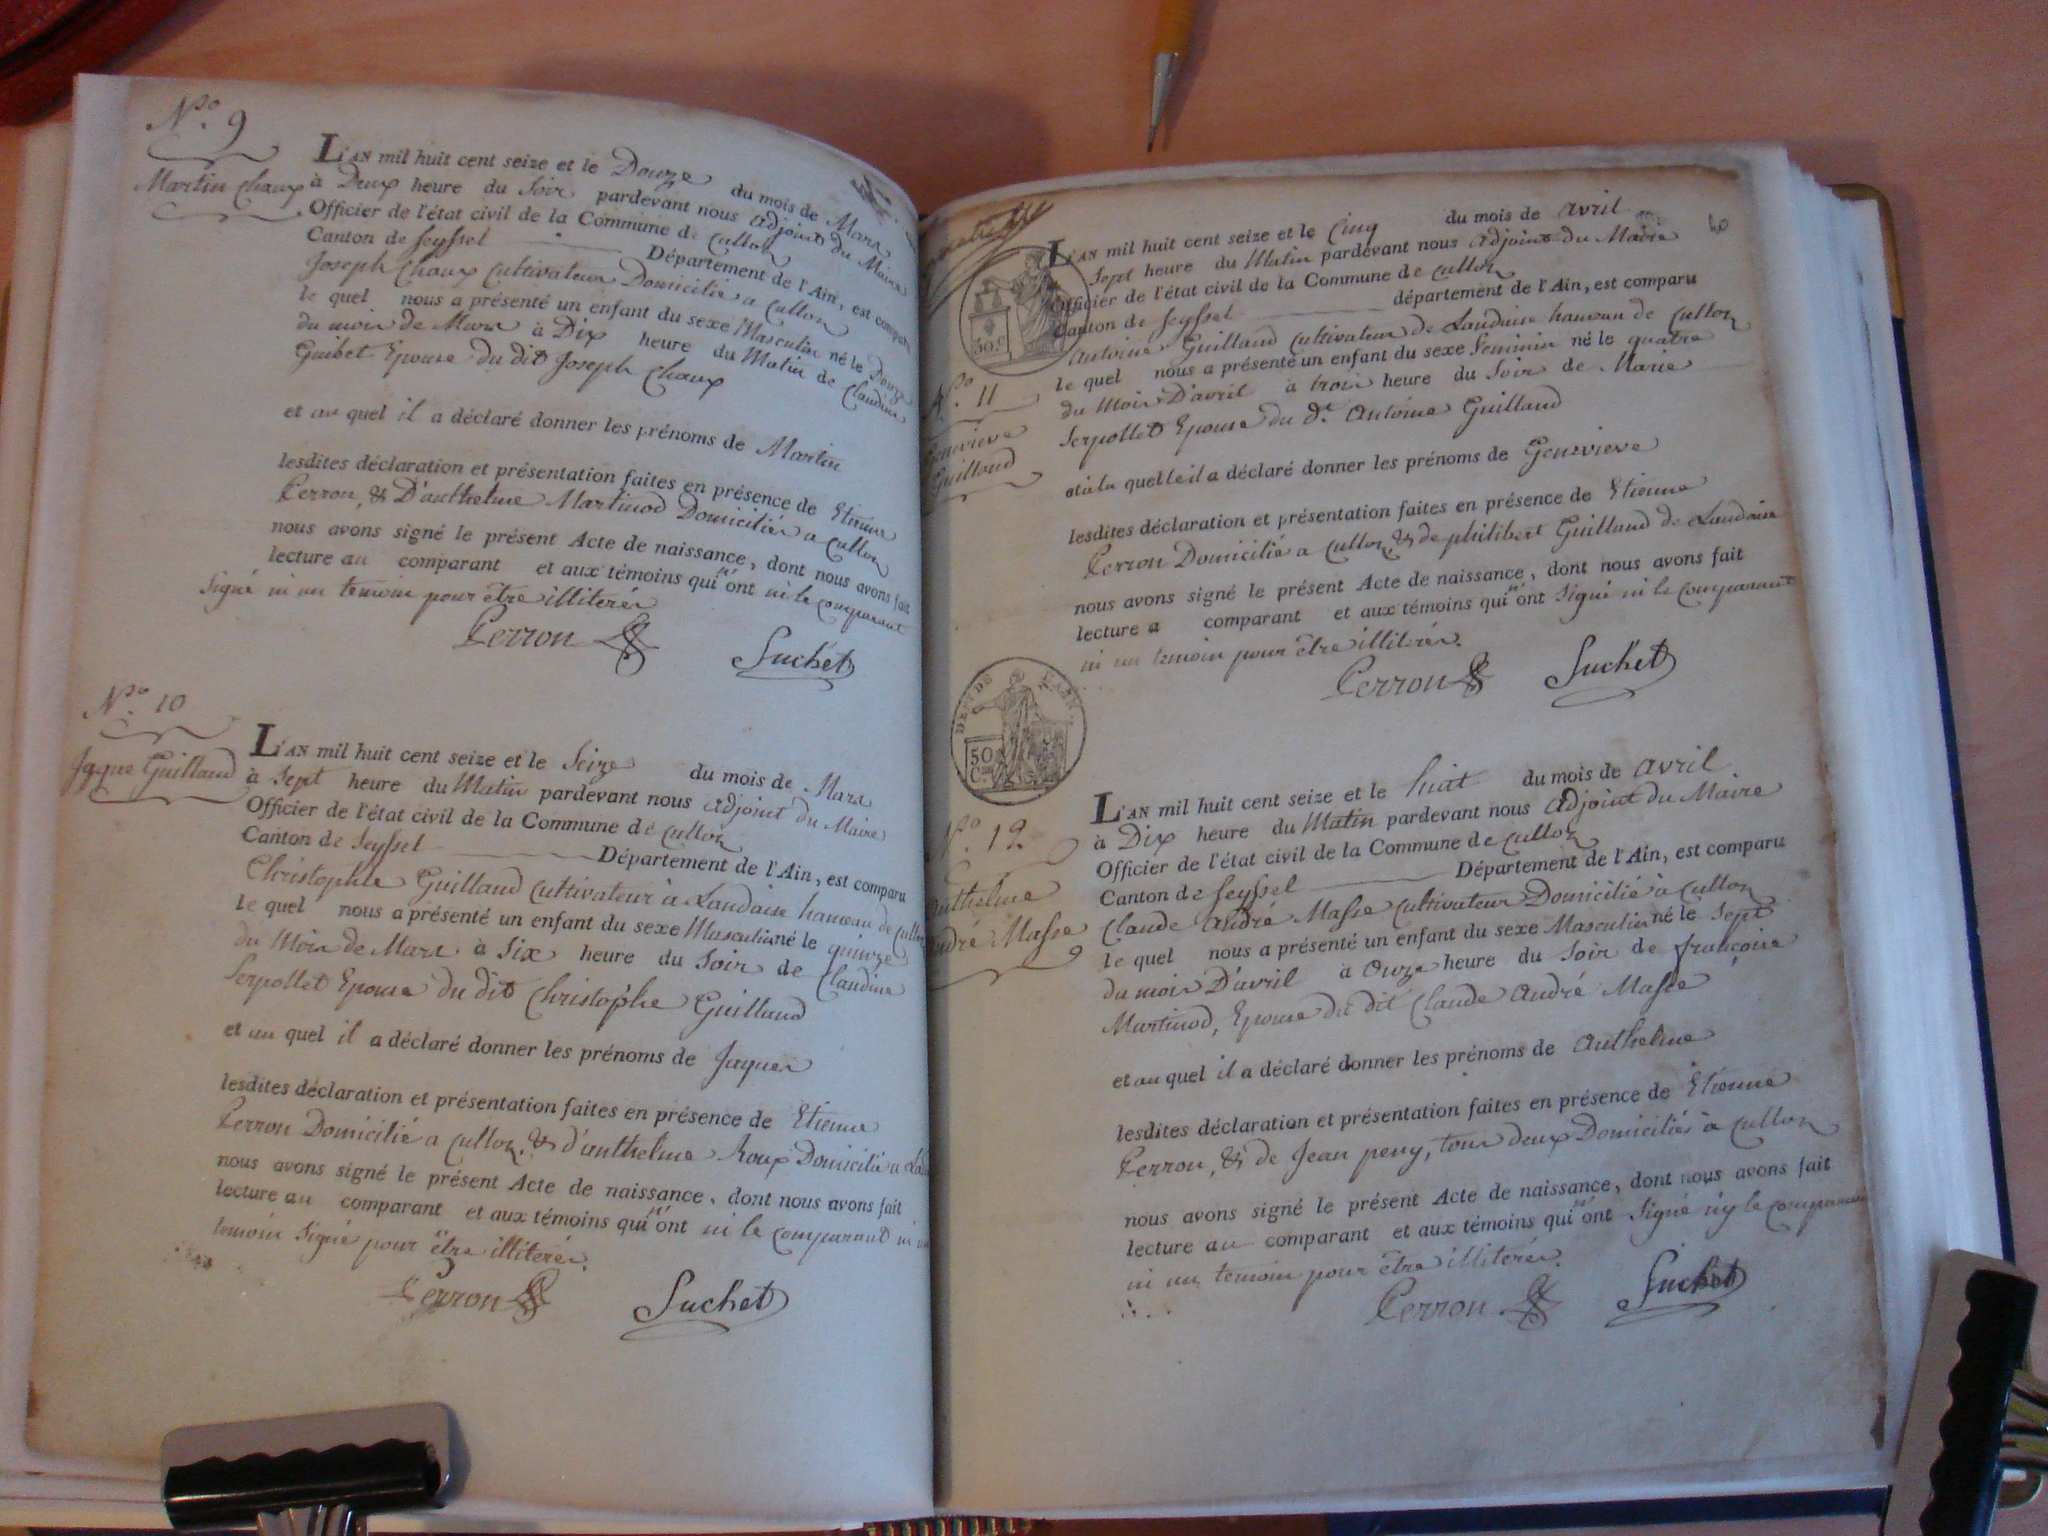 No. 9
Martin Chaux
L'AN mil huit cent seize et le Douze du mois de Mars
à Deux heure du Soir pardevant nous adjoint du Maire
Officier de l'état civil de la Commune de Culloz
Canton de Seyssel Département de l'Ain, est comparu
Joseph Chaux Cultivateur Domicilié a Culloz
le quel nous a présenté un enfant du sexe Masculin né le Douze
du mois de Mars à Dix heure du Matin de Claudine
Guibet Epouse du dit Joseph Chaux
et au quel il a déclaré donner les prénoms de Martin
lesdites déclaration et présentation faites en présence de Etienne
Perron, & D'anthelme Martinod Domiciliés a Culloz
nous avons signé le présent Acte de naissance, dont nous avons fait
lecture au comparant et aux témoins qui n'ont ni le comparant
Signé ni un temoin pour être illiterés
Perron Suchet
No. 10
Jaque Guilland
L'AN mil huit cent seize et le Seize du mois de Mars
à Sept heure du Matin pardevant nous adjoint du Maire
Officier de l'état civil de la Commune de Culloz
Canton de Seyssel Département de l'Ain, est comparu
Christophe Guilland Cultivateur à Landaise hameau de Culloz
le quel nous a présenté un enfant du sexe Masculin né le quinze
du Mois de Mars à Six heure du Soir de Claudine
Serpollet Epouse du dit Christophe Guilland
et au quel il a déclaré donner les prénoms de Jaques
lesdites déclaration et présentation faites en présence de Etienne
Perron Domicilié a Culloz, & d'anthelme Roux Domicilié a
nous avons signé le présent Acte de naissance, dont nous avons fait
lecture au comparant et aux témoins qui n'ont ni le comparant ni un
temoin Signé pour être illiterés.
Perron Suchet
6
50.C
No. 11
Genevieve
Guilland
L'AN mil huit cent seize et le Cinq du mois de avril
Sept heure du Matin pardevant nous adjoint du Maire
Officier de l'état civil de la Commune de Culloz
Canton de Seyssel département de l'Ain, est comparu
Antoine Guilland Cultivateur de Landaise hameau de Culloz
le quel nous a présenté un enfant du sexe Feminin né le quatre
du Mois D'avril à trois heure du Soir de Marie
Serpollet Epouse du d.t Antoine Guilland
et à la quelle il a déclaré donner les prénoms de Genevieve
lesdites déclaration et présentation faites en présence de Etienne
Perron Domicilié a Culloz, & de philibert Guilland de Landaise
nous avons signé le présent Acte de naissance, dont nous avons fait
lecture a comparant et aux témoins qui n'ont Signé ni le comparant
ni un temoin pour être illiterés.
Perron Suchet
50
C.
No. 12
Anthelme
André Masse
L'AN mil huit cent seize et le huit du mois de avril
à Dix heure du Matin pardevant nous adjoint du Maire
Officier de l'état civil de la Commune de Culloz
Canton de Seyssel Département de l'Ain, est comparu
Claude André Masse Cultivateur Domicilié à Culloz
le quel nous a présenté un enfant du sexe Masculin né le Sept
du mois D'avril à Onze heure du Soir de françoise
Martinod, Epouse du dit Claude André Masse
et au quel il a déclaré donner les prénoms de Anthelme
lesdites déclaration et présentation faites en présence de Etienne
Perron, & de Jean peny, tous deux Domiciliés à Culloz
nous avons signé le présent Acte de naissance, dont nous avons fait
lecture au comparant et aux témoins qui n'ont Signé n'y le comparant
ni un temoin pour être illiterés.
Perron Suchet